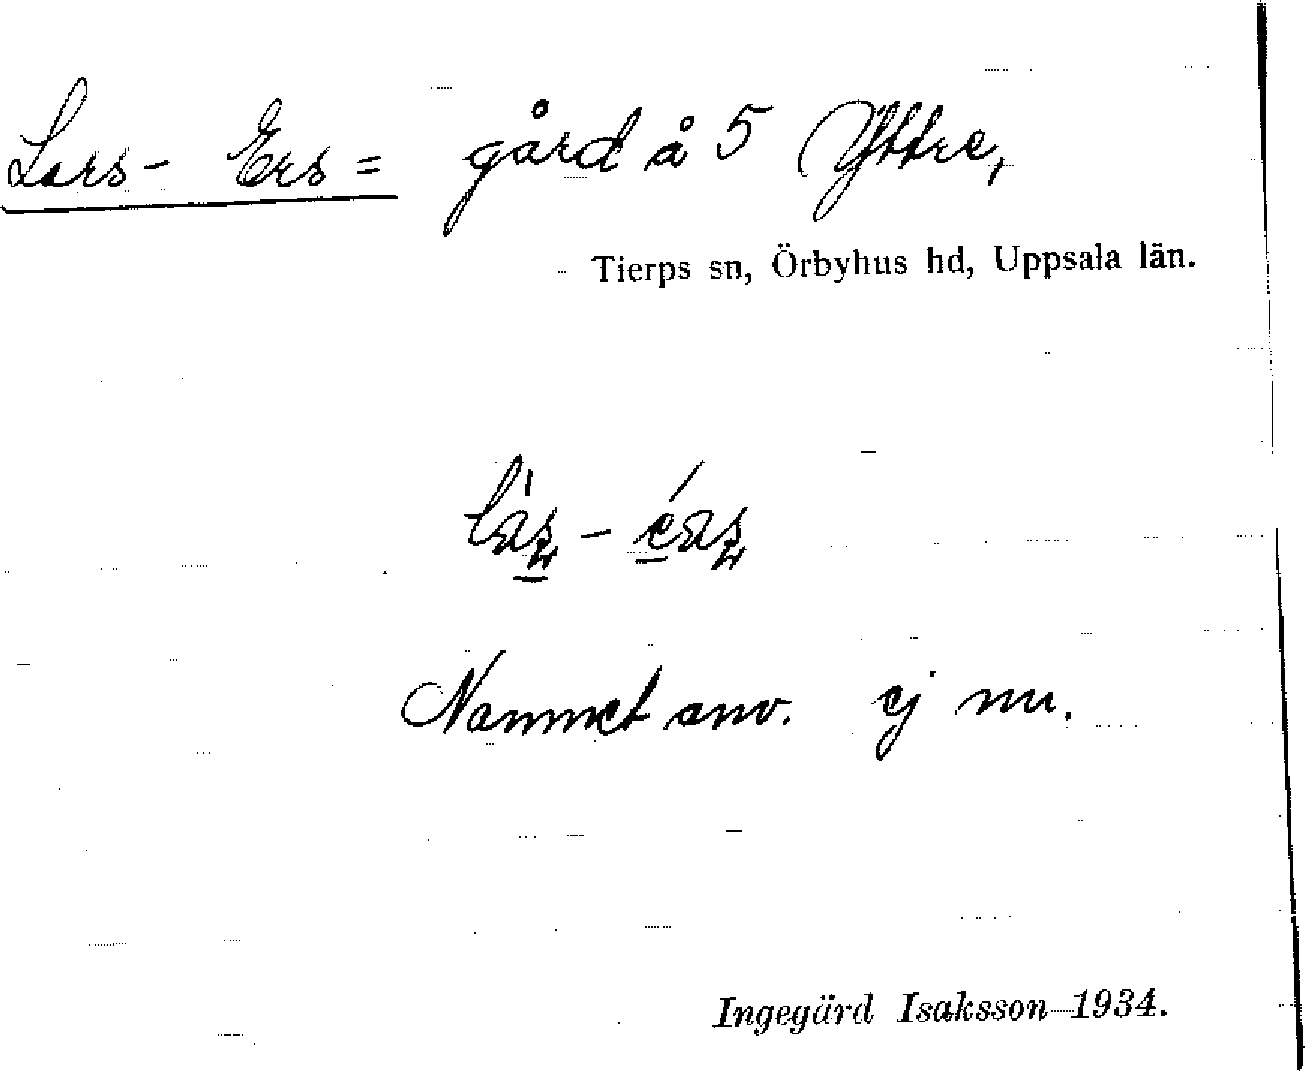 Lars-Ers= gård å 5 Yttre,
Tierps sn, Örbyhus hd, Uppsala län.
Namnet anv. ej nu.
Ingegärd Isaksson 1934.